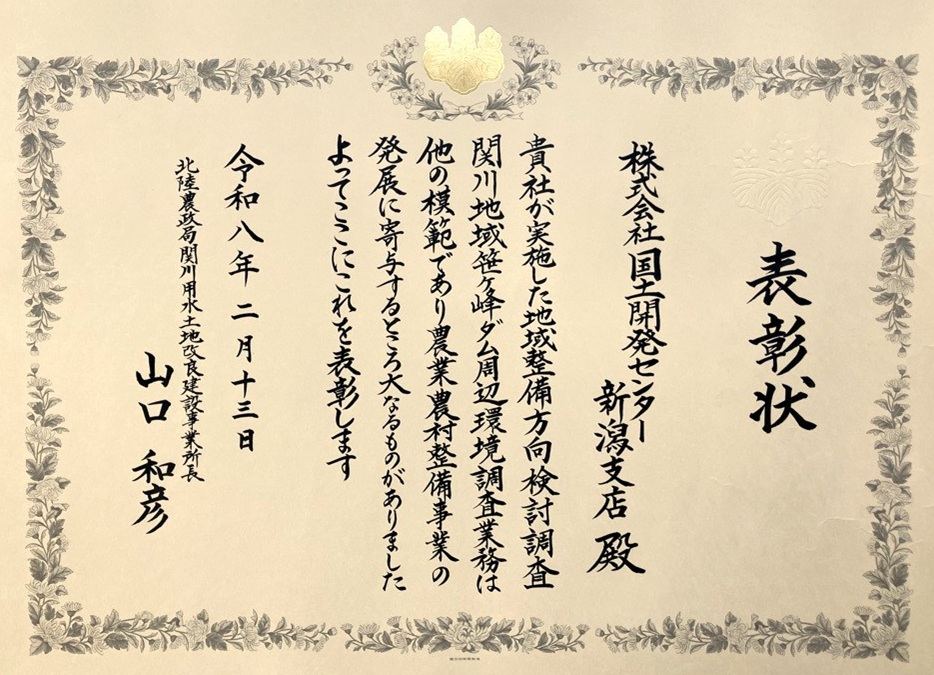 表彰状
株式会社国土開発センター
新潟支店 殿
貴社が実施した地域整備方向検討調査
関川地域笹ヶ峰ダム周辺環境調査業務は
他の模範であり農業農村整備事業の
発展に寄与するところ大なるものがありました
よってここにこれを表彰します
令和八年 二月十三日
北陸農政局関川用水土地改良建設事業所長
山口 和彦